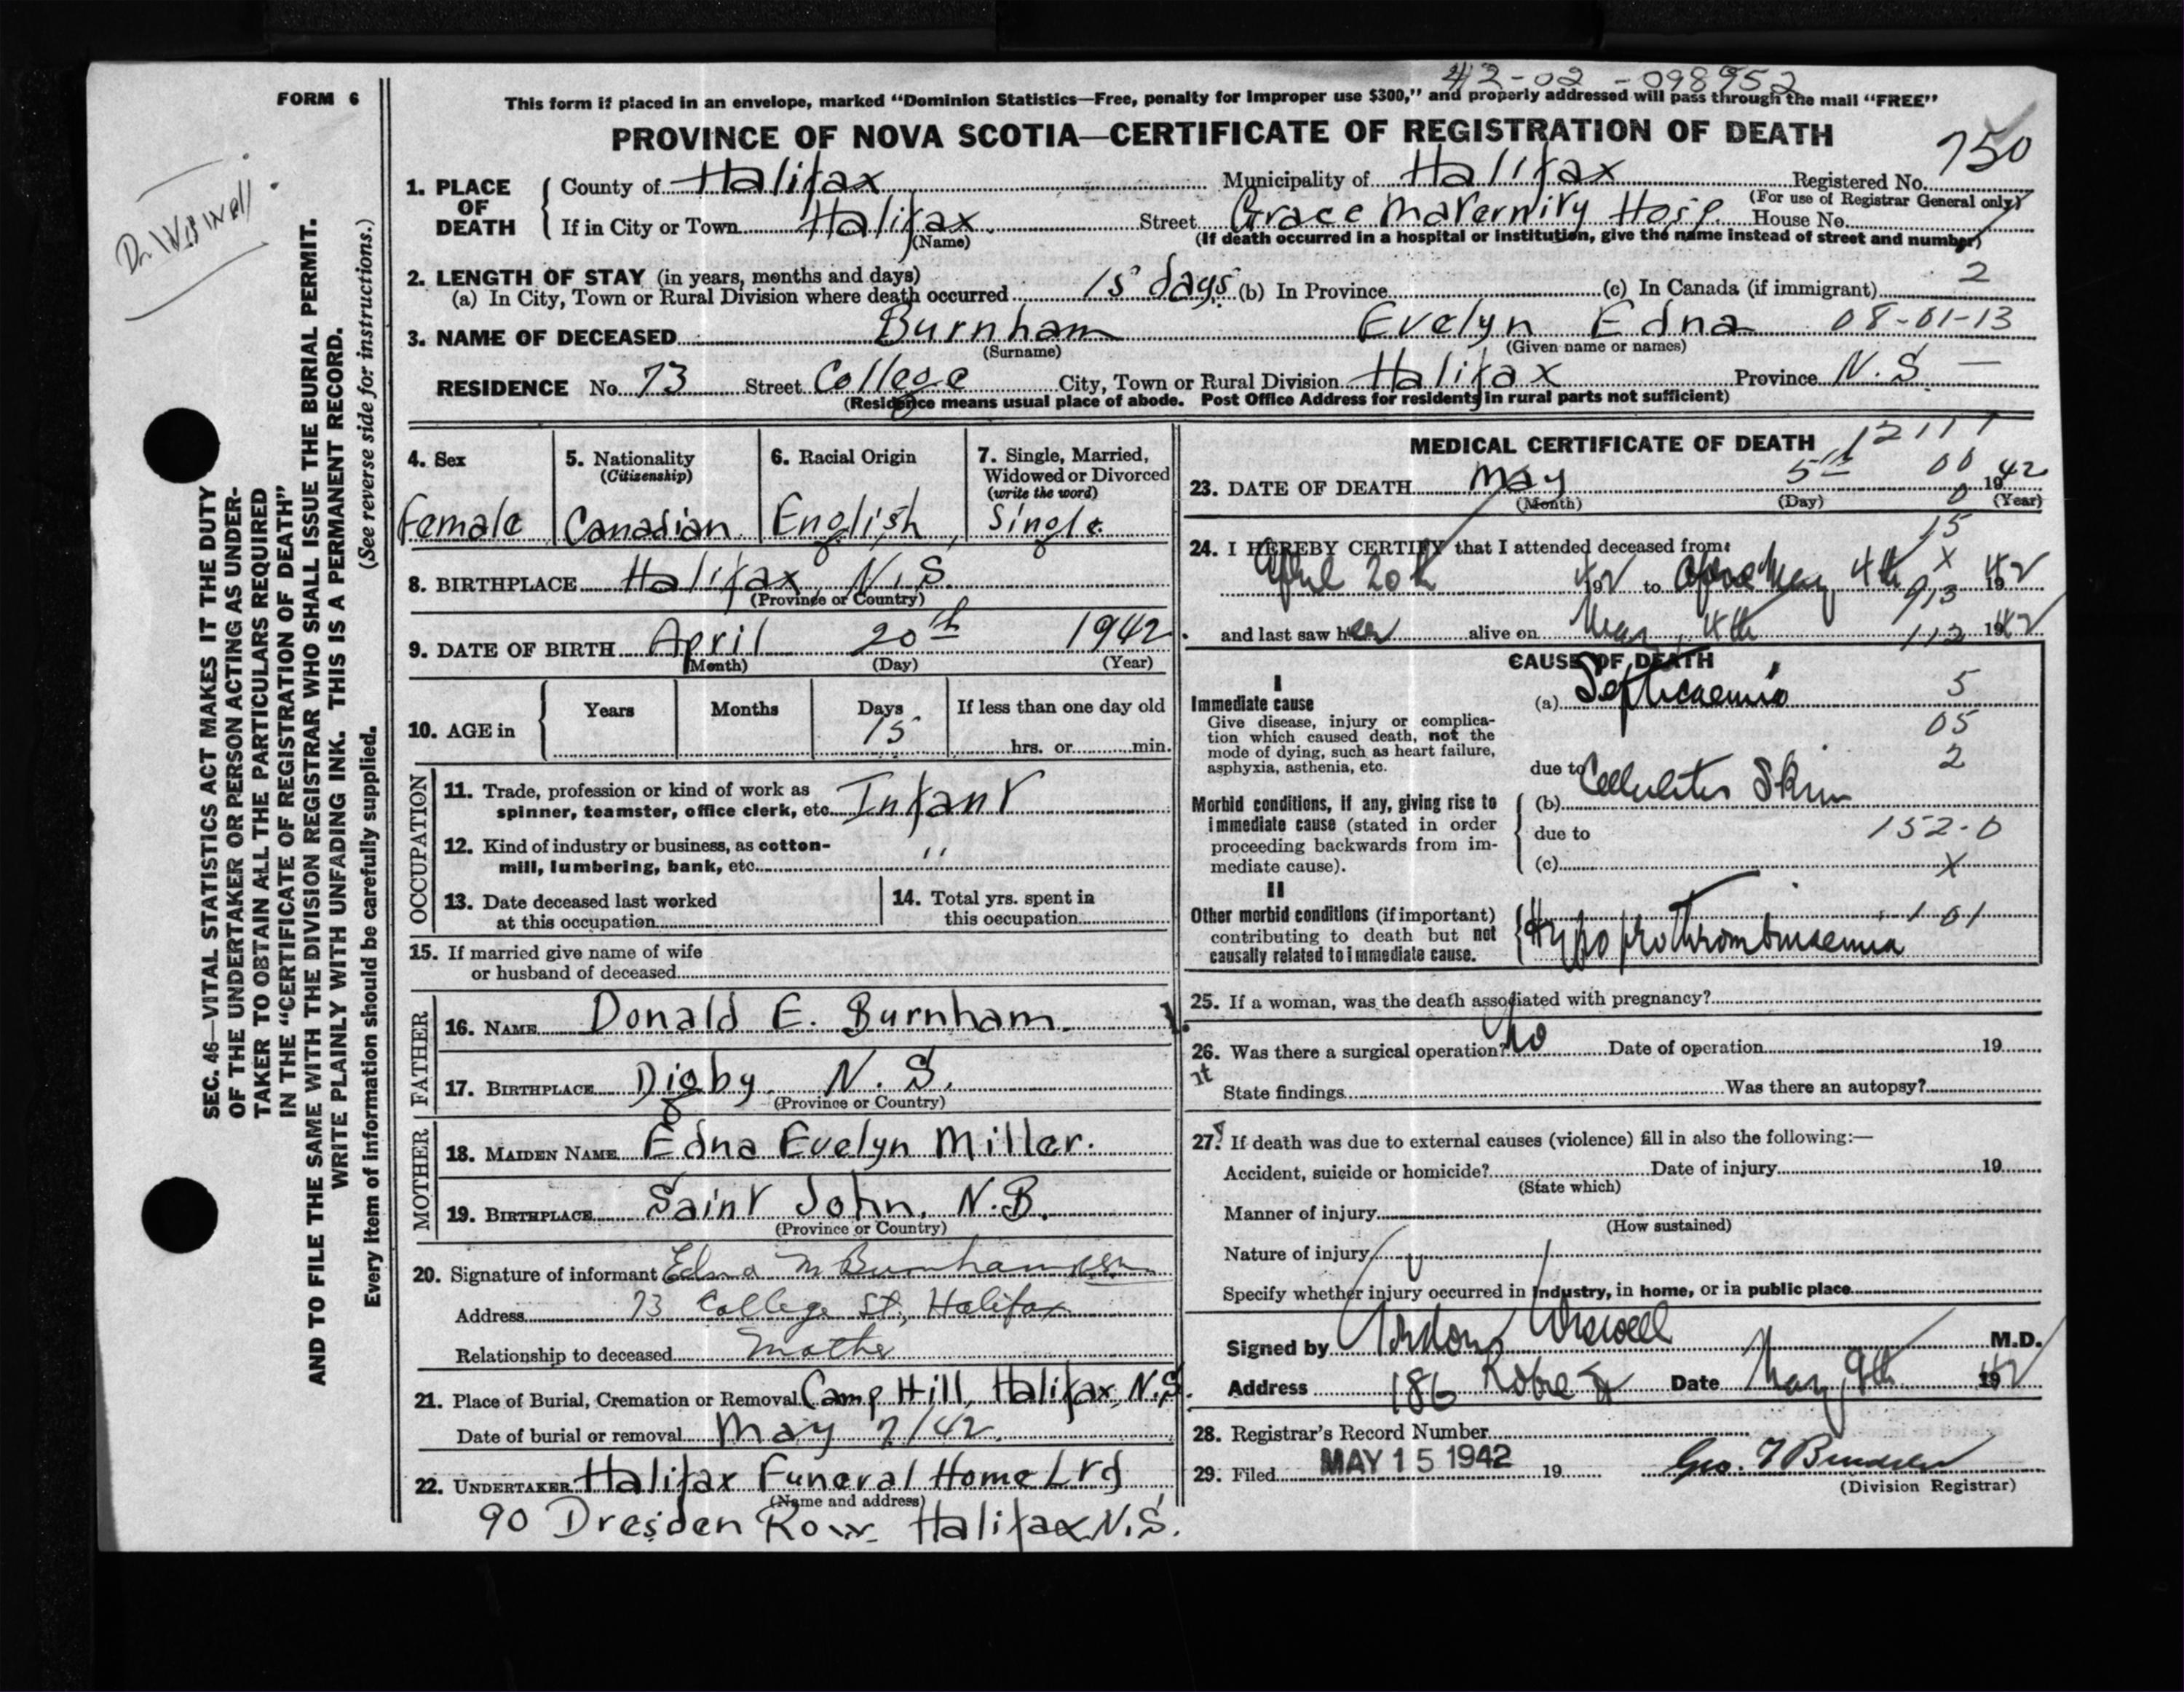 42-02-098952
FORM 6
This form if placed in an envelope, marked “Dominion Statistics—Free, penalty for improper use $300,” and properly addressed will pass through the mail “FREE”
PROVINCE OF NOVA SCOTIA—CERTIFICATE OF REGISTRATION OF DEATH
750
Dr. Wiswell
1. PLACE OF DEATH
County of Halifax Municipality of Halifax Registered No.
(For use of Registrar General only)
If in City or Town Halifax Street Grace Maternity Hosp. House No.
(Name) (If death occurred in a hospital or institution, give the name instead of street and number)
2. LENGTH OF STAY (in years, months and days)
(a) In City, Town or Rural Division where death occurred 15 days (b) In Province (c) In Canada (if immigrant) 2
3. NAME OF DECEASED Burnham Evelyn Edna 08-01-13
(Surname) (Given name or names)
RESIDENCE No. 73 Street College City, Town or Rural Division Halifax Province N.S. —
(Residence means usual place of abode. Post Office Address for residents in rural parts not sufficient)
4. Sex Female
5. Nationality (Citizenship) Canadian
6. Racial Origin English
7. Single, Married, Widowed or Divorced (write the word) Single
8. BIRTHPLACE Halifax N.S.
(Province or Country)
9. DATE OF BIRTH April 20th 1942
(Month) (Day) (Year)
10. AGE in Years Months Days 15 If less than one day old hrs. or min.
OCCUPATION
11. Trade, profession or kind of work as spinner, teamster, office clerk, etc. Infant
12. Kind of industry or business, as cotton-mill, lumbering, bank, etc. "
13. Date deceased last worked at this occupation
14. Total yrs. spent in this occupation
15. If married give name of wife or husband of deceased
FATHER
16. NAME Donald E. Burnham.
17. BIRTHPLACE Digby N.S.
(Province or Country)
MOTHER
18. MAIDEN NAME Edna Evelyn Miller.
19. BIRTHPLACE Saint John, N.B.
(Province or Country)
20. Signature of informant Edna M Burnham
Address 73 College St., Halifax
Relationship to deceased Mother
21. Place of Burial, Cremation or Removal Camp Hill, Halifax, N.S.
Date of burial or removal May 7/42.
22. UNDERTAKER Halifax Funeral Home Ltd
(Name and address)
90 Dresden Row Halifax N.S.
MEDICAL CERTIFICATE OF DEATH
12111
00
0
23. DATE OF DEATH May 5th 1942
(Month) (Day) (Year)
15
X
24. I HEREBY CERTIFY that I attended deceased from:
April 20th 1942 to May 4th 1942
913
and last saw her alive on May 4th 1942
112
CAUSE OF DEATH
I
Immediate cause
Give disease, injury or complication which caused death, not the mode of dying, such as heart failure, asphyxia, asthenia, etc.
(a) Septicaemia 5
05
due to 2
Morbid conditions, if any, giving rise to immediate cause (stated in order proceeding backwards from immediate cause).
(b) Cellulitis Skin
due to 152-0
(c) X
II
Other morbid conditions (if important) contributing to death but not causally related to immediate cause.
101
Hypoprothrombinaemia
25. If a woman, was the death associated with pregnancy?
26. Was there a surgical operation? No Date of operation 19
State findings Was there an autopsy?
27. If death was due to external causes (violence) fill in also the following:—
Accident, suicide or homicide? Date of injury 19
(State which)
Manner of injury
(How sustained)
Nature of injury
Specify whether injury occurred in industry, in home, or in public place
Signed by Gordon Wiswell M.D.
Address 186 Robie St Date May 9th 1942
28. Registrar's Record Number
29. Filed MAY 15 1942 19 Geo.
(Division Registrar)
SEC. 46—VITAL STATISTICS ACT MAKES IT THE DUTY
OF THE UNDERTAKER OR PERSON ACTING AS UNDER-
TAKER TO OBTAIN ALL THE PARTICULARS REQUIRED
IN THE “CERTIFICATE OF REGISTRATION OF DEATH”
AND TO FILE THE SAME WITH THE DIVISION REGISTRAR WHO SHALL ISSUE THE BURIAL PERMIT.
WRITE PLAINLY WITH UNFADING INK. THIS IS A PERMANENT RECORD.
(See reverse side for instructions.)
Every item of information should be carefully supplied.